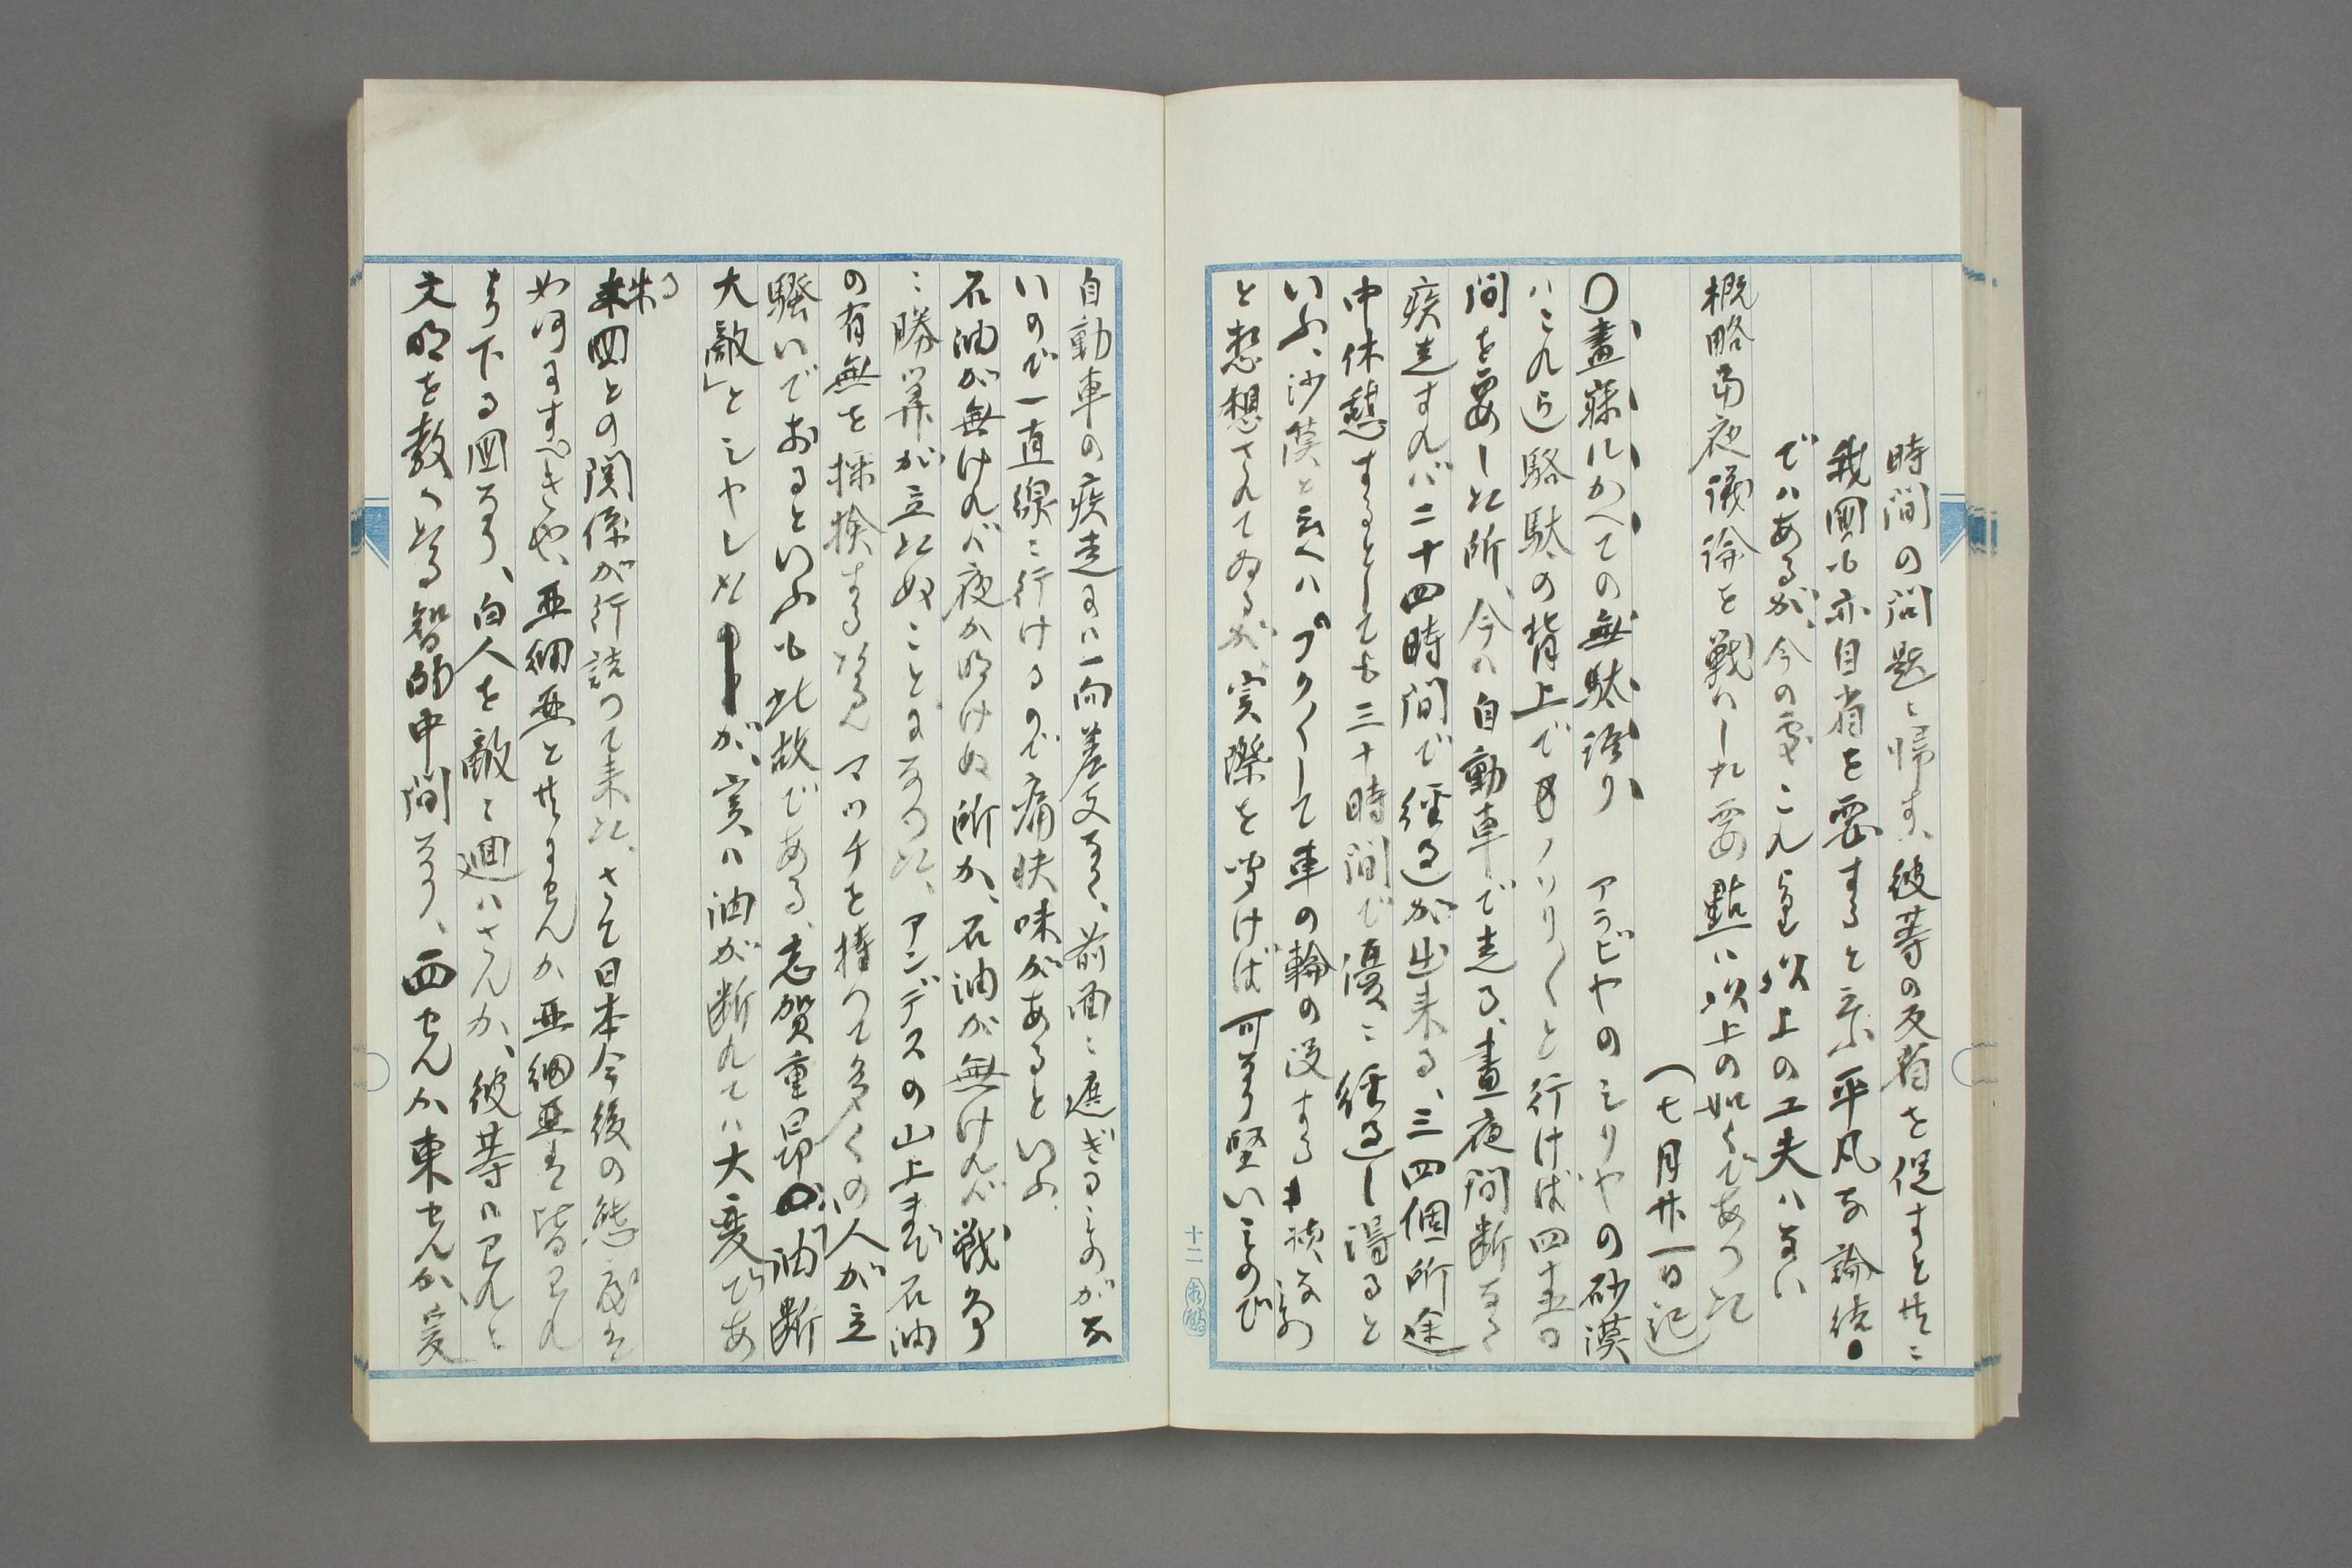 時間の問題ニ帰す、彼等の反省を促すと共ニ
我國も亦自省を要すると云ふ平凡な論結
でハあるが、今の處これ以上の工夫ハない
概略南夜議論を戦ハした要點ハ以上の如くであつた
(七月廿一日記)
〇晝寐にかへての無駄語り　アラビヤのシリヤの砂漠
ハこれ迄駱駝の背上でノソリ〱と行けば四十五日
間を要した所、今ハ自動車で走る、晝夜間断なく
疾走すれバ二十四時間で経過が出来る、三四個所途
中休憩するとしても三十時間で優ニ経過し得ると
いふ、沙漠と云へハブク〱して車の輪の没する様ニ
と想想されてゐるが、実際を聞けば可なり堅いもので
自動車の疾走にハ一向差支なく、前面ニ遮ぎるものがな
いので一直線ニ行けるので痛快味があるといふ、
石油が無けれバ夜か明けぬ所か、石油が無けれバ戦争
ニ勝算が立たぬことになつた、アンデスの山上まで石油
の有無を探検する為めマッチを持つて多くの人が立
騒いでおるといふも此故である、志賀重昂が「油断
大敵」とシヤレたが、実ハ油が断れてハ大変であ
る
米国との関係が行詰つて来た、さて日本今後の態度は
如何にすべきや、亜細亜と共にせんか亜細亜は皆己れ
より下る国なり、白人を敵と廻ハさんか、彼等ハ己れニ
文明を教へたる智的中間なり、西せんか東せんか、爰
十二